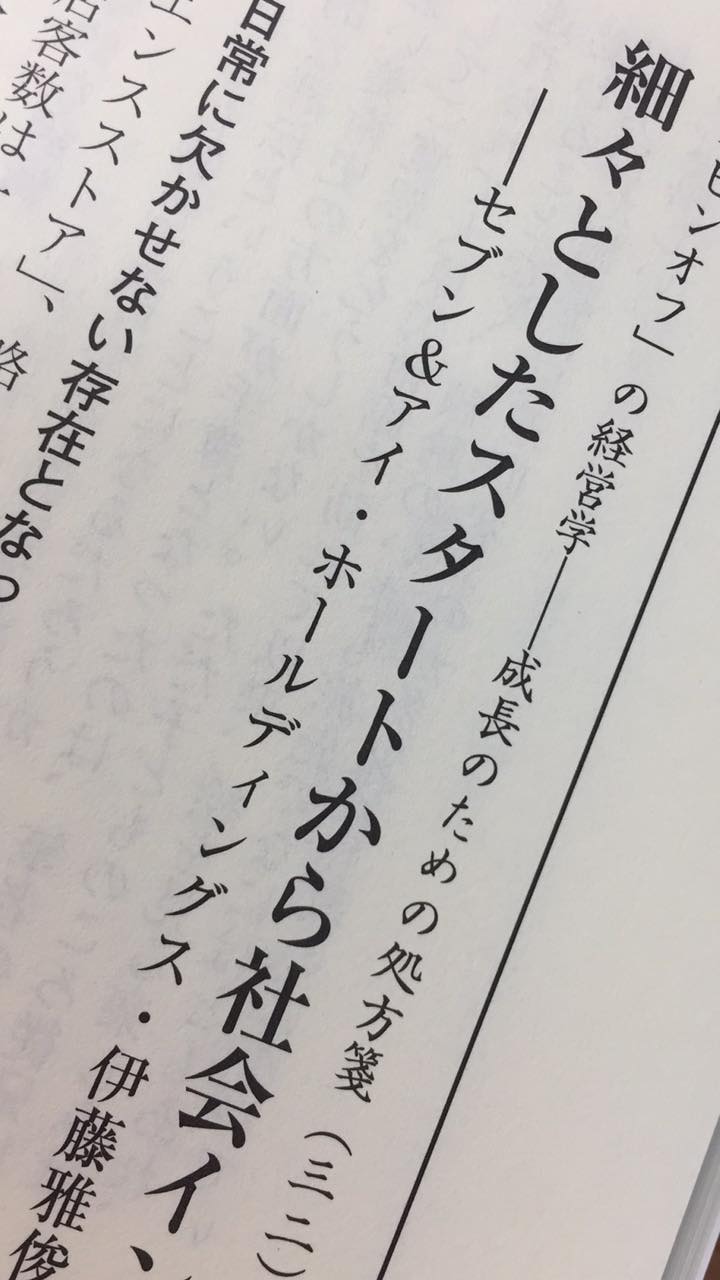 ピンオフ」の経営学――成長のための処方箋(三二)
細々としたスタートから社会イン
――セブン&アイ・ホールディングス・伊藤雅俊
日常に欠かせない存在となっ
エンスストア」、
店客数は